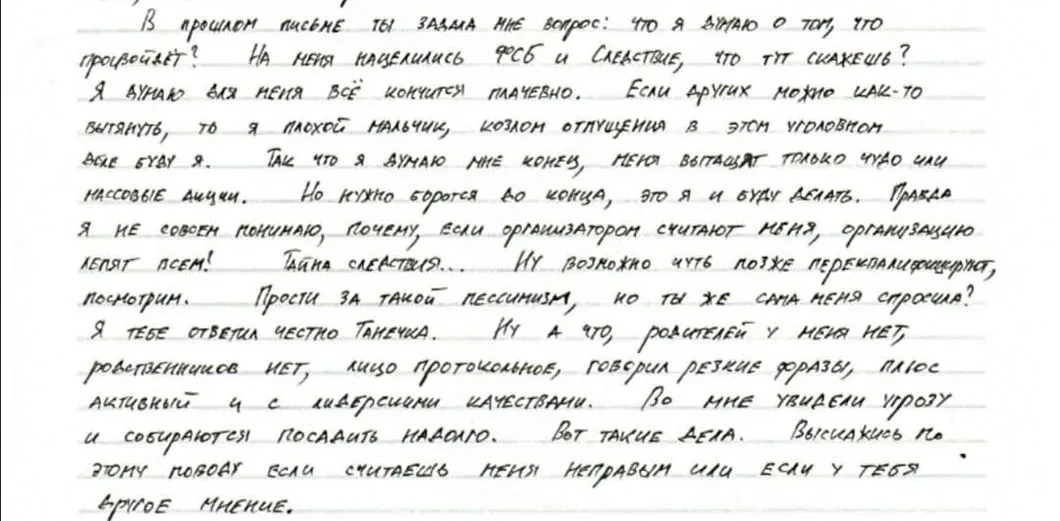 В прошлом письме ты задала мне вопрос: что я думаю о том, что
произойдёт? На меня нацелились ФСБ и Следствие, что тут скажешь?
Я думаю для меня всё кончится плачевно. Если других можно как-то
вытянуть, то я плохой мальчик, козлом отпущения в этом уголовном
деле буду я. Так что я думаю мне конец, меня вытащат только чудо или
массовые акции. Но нужно боротся до конца, это я и буду делать. Правда
я не совсем понимаю, почему, если организатором считают меня, организацию
лепят всем! Тайна следствия... Ну возможно чуть позже переквалифицируют,
посмотрим. Прости за такой пессимизм, но ты же сама меня спросила?
Я тебе ответил честно Танечка. Ну а что, родителей у меня нет,
родственников нет, лицо протокольное, говорил резкие фразы, плюс
активный и с лидерскими качествами. Во мне увидели угрозу
и собираются посадить надолго. Вот такие дела. Выскажись по
этому поводу если считаешь меня неправым или если у тебя
другое мнение.